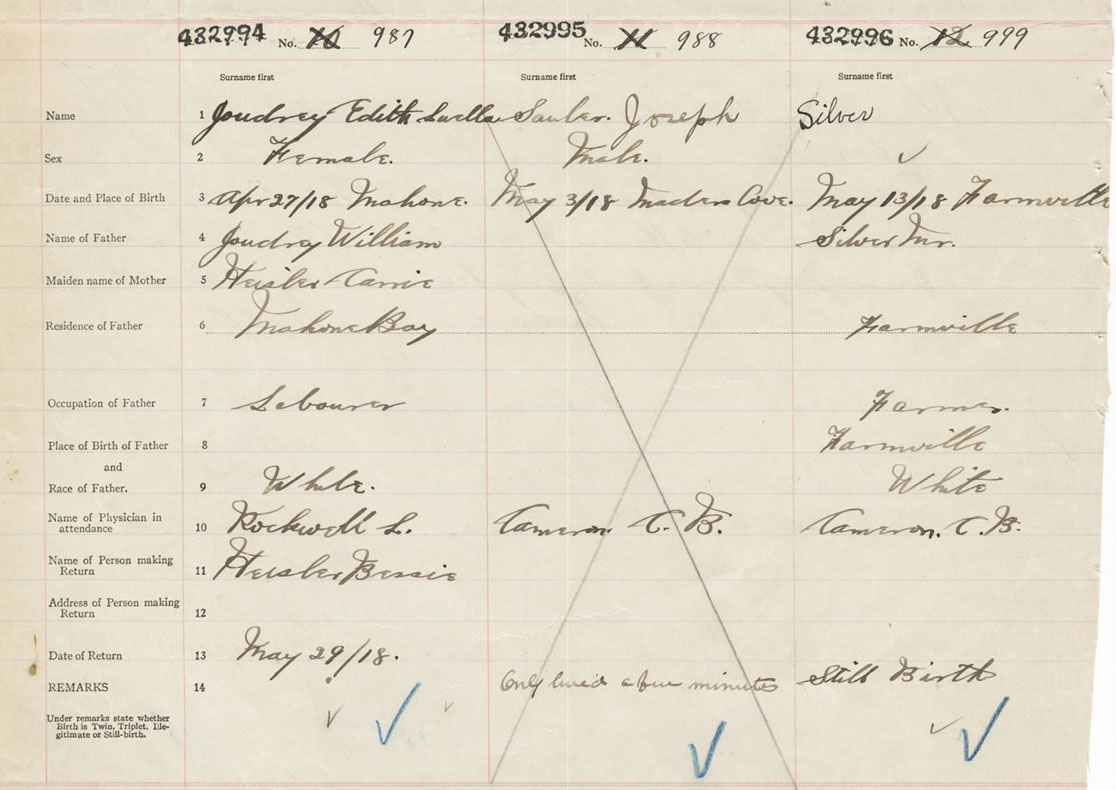 432994 No. 10 987 432995 No. 11 988 432996 No. 12 999
Surname first Surname first Surname first
Name 1 Joudrey Edith Luella Sauler. Joseph Silver
Sex 2 Female. Male.
Date and Place of Birth 3 Apr 27/18 Mahone. May 3/18 Maders Cove. May 13/18 Farmville
Name of Father 4 Joudrey William Silver Mr.
Maiden name of Mother 5 Heisler Carrie
Residence of Father 6 Mahone Bay Farmville
Occupation of Father 7 Labourer Farmer.
Place of Birth of Father 8 Farmville
and
Race of Father. 9 White. White
Name of Physician in
attendance 10 Rockwell L. Cameron. C. B. Cameron. C. B.
Name of Person making
Return 11 Heisler Bessie
Address of Person making
Return 12
Date of Return 13 May 29/18.
REMARKS 14 Only lived a few minutes Still Birth
Under remarks state whether
Birth is Twin, Triplet, Ille-
gitimate or Still-birth.